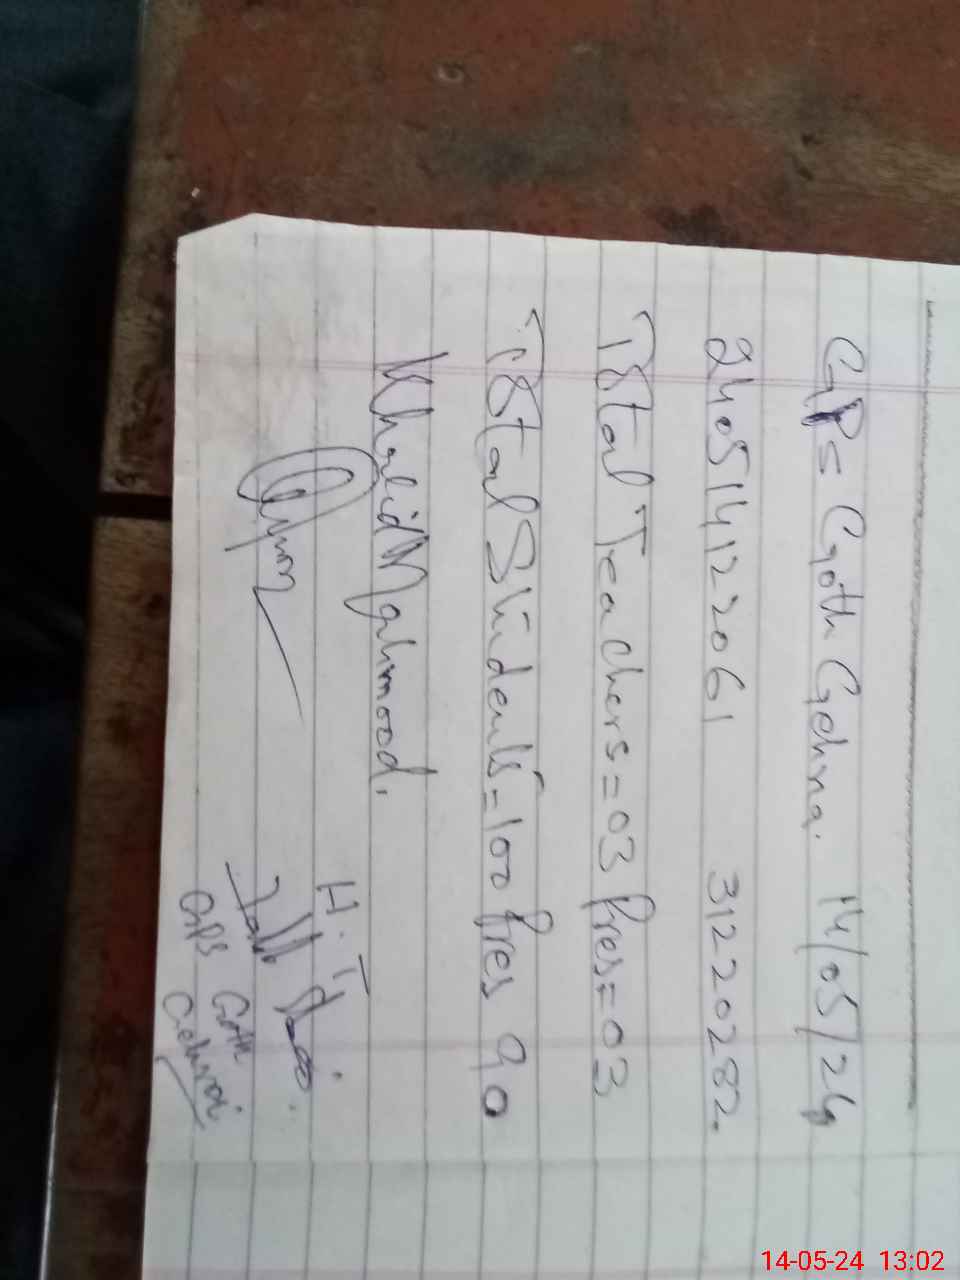 GPS Goth Gehna. 14/05/24
240514122061 31220282.
Total Teachers=03 Pres=03
Total Students=100 Pres 90
Khalid Mahmood.
H.T
GPS Goth
Gehna
14-05-24 13:02